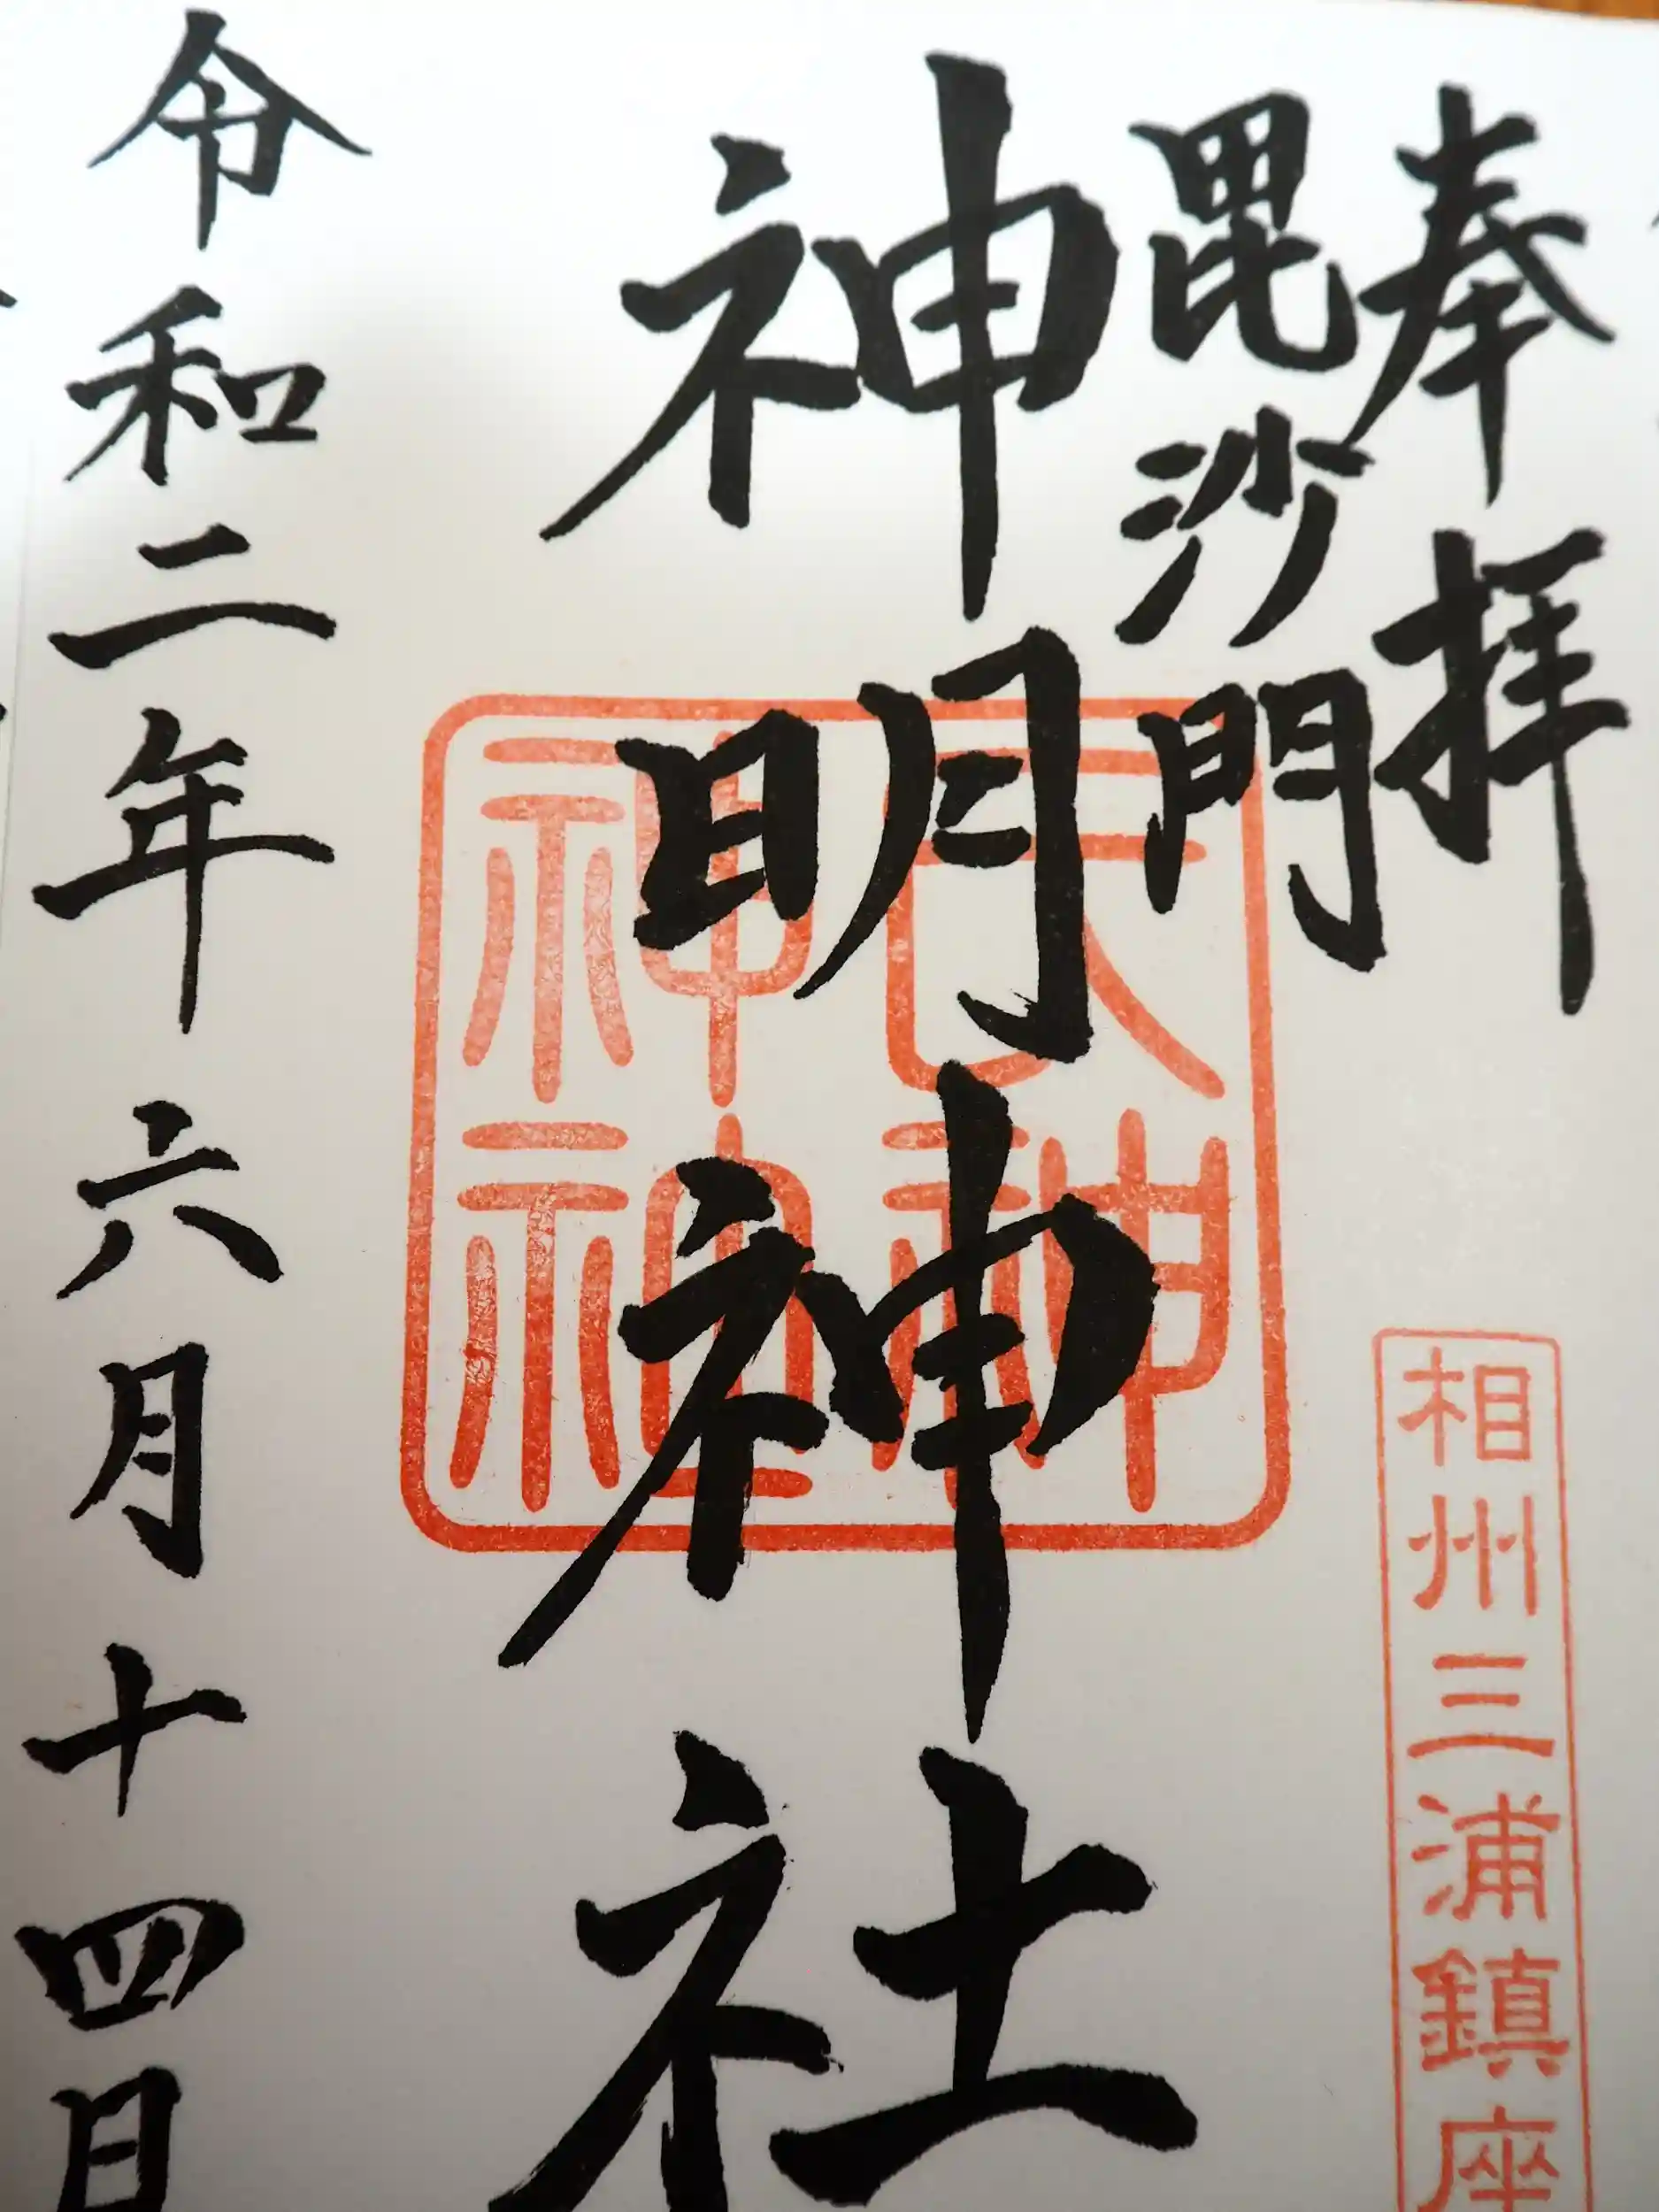 奉拝
相州三浦鎮座
毘沙門
神明神社
天神神社
令和二年六月十四日